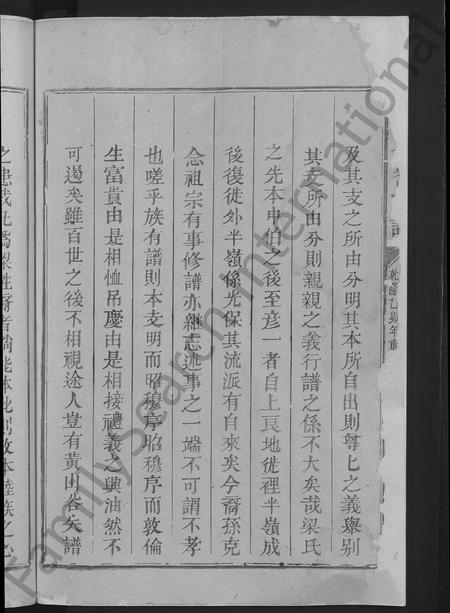 及其支之所由分明其本所自出則尊匕之義舉别
其支所由分則親親之義行譜之係不大矣哉梁氏
之先本申伯之後至彦一者自上艮地徙裡半嶺成
後復徙外半嶺係光保其流派有自來矣今裔孫克
念祖宗有事修譜亦繼志述事之一端不可謂不孝
也嗟乎族有譜則本支明而昭穆序昭穆序而敦倫
生富貴由是相恤吊慶由是相接禮義之與油然不
可遏矣雖百世之後不相視途人豈有黄山谷矣譜
乾隆乙夘年重
FamilySearch International